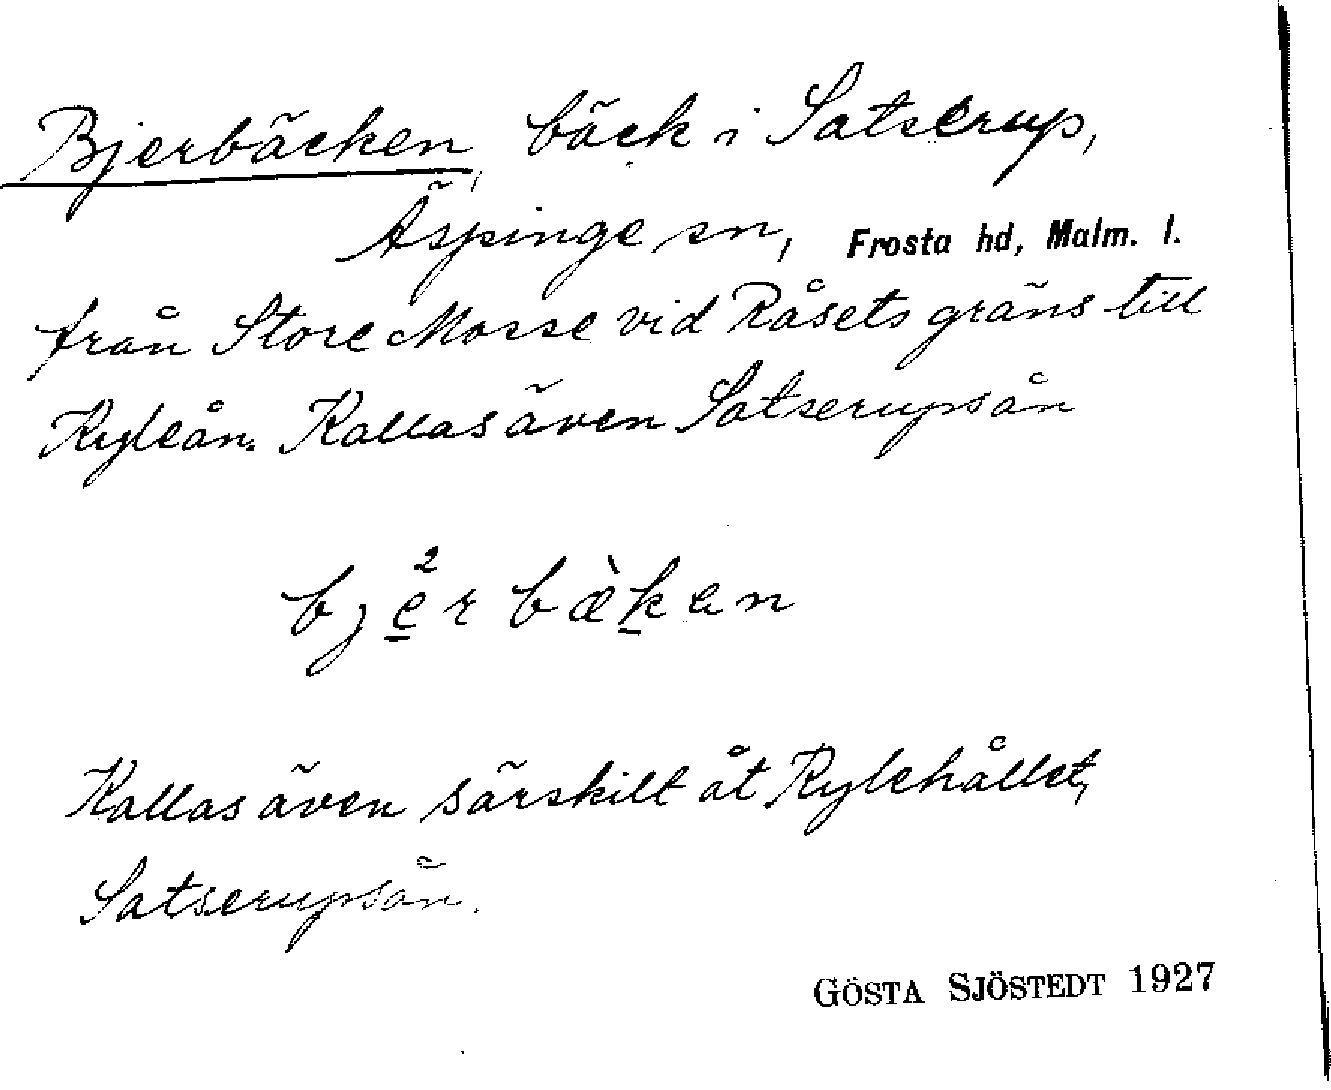 Bjerbäcken, bäck i Satserup,
Äspinge sn, Frosta hd, Malm. l.
från Store Mosse vid Råsets gräns till
Ryleån. Kallas även Satserupsån
bje̲²rbæ̀k̲en
Kallas även särskilt åt Rylehållet,
Satserupsån.
GÖSTA SJÖSTEDT 1927